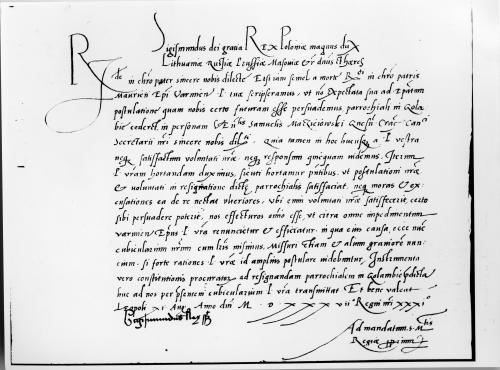 Sigismundus dei gratia Rex Poloniæ magnus dux
Lithuaniæ Russiæ Prussiæ Masouiæ etc̄ dnūs et hæres
Rde in chrō pater sincere nobis dilecte Etsi iam semel a morte R in chrō patris
Mauricii Epī Varmien̄ I tuæ scripseramus, ut nō expectata sua ad Epatum
postulatione quam nobis certo futuram esse persuademus parrochiali in Golã
bie cederet in personam Samuelis Maczieiowski Gnesn̄ Crac̄ Can
Secretarii nrī sincere nobis dilti quia tamen in hoc hucusq a I vestra
neq satisfactum voluntati nrǣ neq responsum quicquam uidemus. Iterum
I vram hortandam duximus, sicuti hortamur pntibus, ut postulationi nrǣ
& voluntati in resignatione dictæ parrochialis satisfaciat neq moras & ex-
cusationes ea de re nectat ulteriores, ubi enim voluntati nrǣ satisfecerit, certo
sibi persuadere poterit, nos effecturos omīo esse, ut citra omne impedimentum
varmien̄ Epus I vra renuncietur & efficiatur, in qua eius causa, ecce nūc
cubicularium nrm̄ cum lrīs misimus, Missuri etiam & alium grauiorē nun-
cium. si forte rationes I vrǣ id amplius postulare uidebuntur, Instrumento
vero constitutionis procuratorum ad resignandam parrochialem in Golambie predictã
huc ad nos per psentem cubicularium I vra transmittat Et bene valeat
Leopoli xi Aug Anno dnī M D xxxvii Regni nrī xxxi
Sigismundus Rex ss
Ad mandatum s Mtis
Regiæ ppium